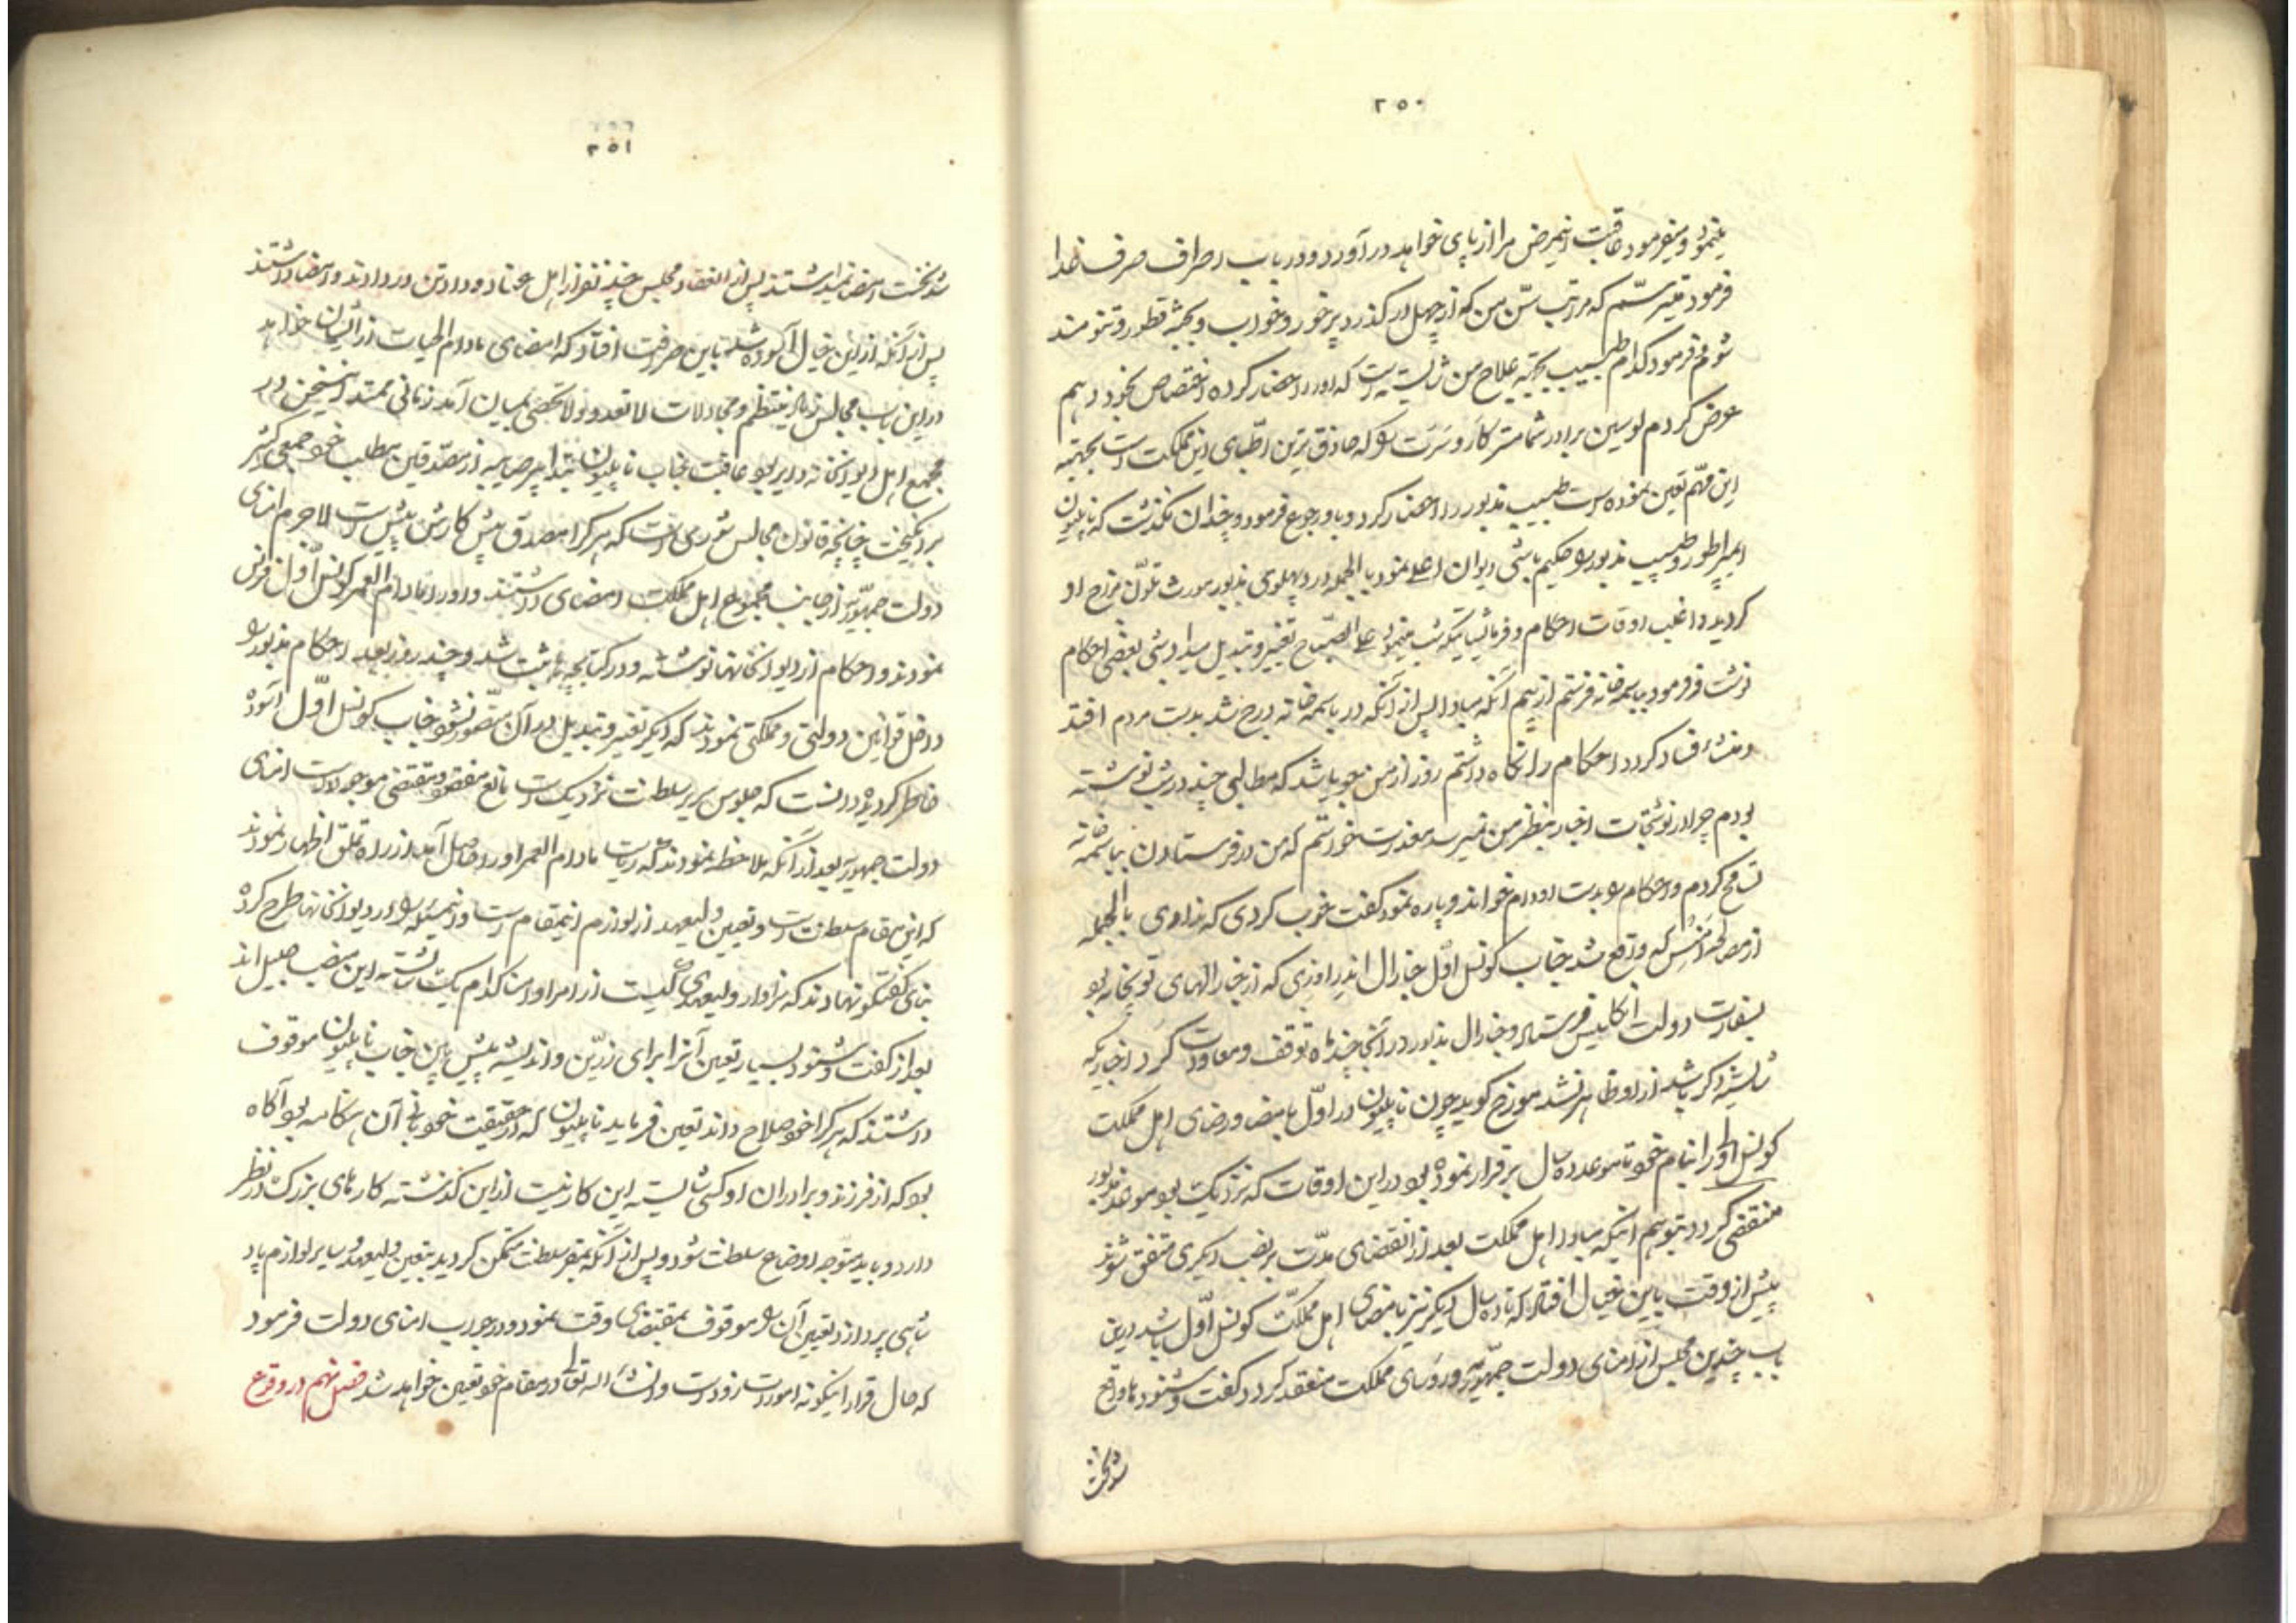 ۲۵۰
مینمود و میفرمود عاقبت اینمرض مرا از پای خواهد در آورد و در باب اصراف صرف غذا
فرمود میترسم که مراتب سن من که از چهل در گذرد پرخور و خواب و بجثه قطور و تنومند
شوم فرمود کدام طبیب بجهته علاج من شایسته است که او را احضار کرده اختصاص بخود دهیم
عرض کردم لوسین برادر شما مسترکار وسرت را که حاذق ترین اطبای این مملکت است بجهته
این مهم تعین نموده است طبیب مذبور را احضار کرد و باو رجوع فرمود و چندان نگذشت که ناپلیون
ایمپراطور و طبیب مذبور را حکیم باشی دیوان اعلی نمود بالجمله درد پهلوی مذبور مورث تلون مزاج او
گردید و اغلب اوقات احکام و فرمایشاتیکه شب مینمود علی الصباح تغییر و تبدیل میداد شبی بعضی احکام
نوشت و فرمود بباسمه خانه فرستم از بیم آنکه مبادا پس از آنکه در باسمه خانه درج شد بدست مردم افتد
و منشاء فساد گردد احکام را نگاه داشتم روز از من جویا شد که مطالبی چند در شب نوشته
بودم چرا در نوشتجات اخبار بنظر من نمیرسد معذرت خواستم که من در فرستادن بباسمه خانه
تسامح کردم و احکام را بدست او دادم خواند و پاره نمود گفت خوب کردی که ندادی بالجمله
از مصالحه امنس که واقع شد جناب کونسل اول جنارال اندراوزی که از جنارالهای توپخانه بود
بسفارت دولت انگلیس فرستاد و جنارال مذبور در آنجا چند ماه توقف و معاودت کرد اخباریکه
شایسته ذکر باشد از او ظاهر نشد مورخ گوید چون ناپلیون در اول بامضا و رضای اهل مملکت
کونسل اولی را بنام خود تا موعد ده سال برقرار نموده بود در این اوقات که نزدیک بود موعد مذبور
منقضی گردد بتوهم اینکه مبادا اهل مملکت بعد از انقضای مدت بر نصب دیگری متفق شوند
پیش از وقت باین خیال افتاد که تا ده سال دیگر نیز بامضای اهل مملکت کونسل اول باشد در این
باب چندین مجلس از امنای دولت جمهوریه و رؤسای مملکت منعقد کرد گفت و شنودها واقع
شد نخست
۲۵۱
شد نخست امضا نمیداشتند پس از انعقاد مجلس چند نفر از اهل عناد و دو تن در دادند و امضا داشتند
پس از آنکه از این خیال آسوده شد باین صرافت افتاد که امضای مادام الحیات از ایشان خواهد
در این باب مجالس زیاد منتظم و مجادلات لا تعد و ولا تحصی بمیان آمد زمانی ممتد اینسخن در
مجمع اهل دیوانخانه دایر بود عاقبت جناب ناپلیون بتدابیر صایبه از مصدقین مطلب خود جمعی کثیر
برانگیخت چنانچه قانون مجالس شوری است که هر که را مصدق بیش کارش پیش است لاجرم امنای
دولت جمهوریه از جانب مجموع اهل مملکت امضای داشتند و او را مادام العمر کونسل اول فرانس
نمودند و احکام از دیوانخانها نوشته و در کتابچه ها ثبت شد و چند روز بعد احکام مذبور را
داخل قوانین دولتی و مملکتی نمودند که دیگر تغییر و تبدیل در آن متصور نشود جناب کونسل اول آسوده
خاطر گردیده دانست که جلوس سریر سلطنت نزدیک است مانع مفقود و مقتضی موجود است امنای
دولت جمهوریه بعد از آنکه ملاحظه نمودند که ریاست مادام العمر او را حاصل آمد از راه تملق اظهار نمودند
که این مقام سلطنت است و تعیین ولیعهد از لوازم اینمقام است و اینمسئله را در دیوانخانها طرح کرده
بنای گفتگو نهادند که سزاوار ولیعهدی کیست از امرا و امنا کدام یک شایسته این منصب جلیل اند
بعد از گفت و شنود بسیار تعیین آنرا برای زرین و اندیشه پیش بین جناب ناپلیون موقوف
داشتند که هر که را خود صلاح داند تعیین فرماید ناپلیون که در حقیقت خود بانی آن هنگامه بود آگاه
بود که از فرزند و برادران او کسی شایسته این کار نیست از این گذشته کارهای بزرگ در نظر
دارد و باید متوجه اوضاع سلطنت شود و پس از آنکه بمقر سلطنت متمکن گردید بتعیین ولیعهد و سایر لوازم پاد
شاهی پردازد تعیین آن را موقوف بمقتضای وقت نمود و در جواب امنای دولت فرمود
که حال قرار اینگونه امورات زود است و انشاء الله تعالی در مقام خود تعیین خواهد شد فصل نهم در وقوع